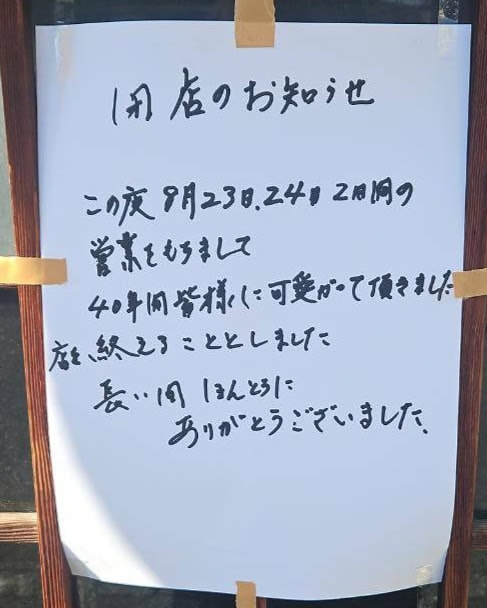 閉店のお知らせ
この度 8月23日、24日 2日間の
営業をもちまして
40年間皆様に可愛がって頂きました
店を、終えることとしました
長い間 ほんとうに
ありがとうございました。